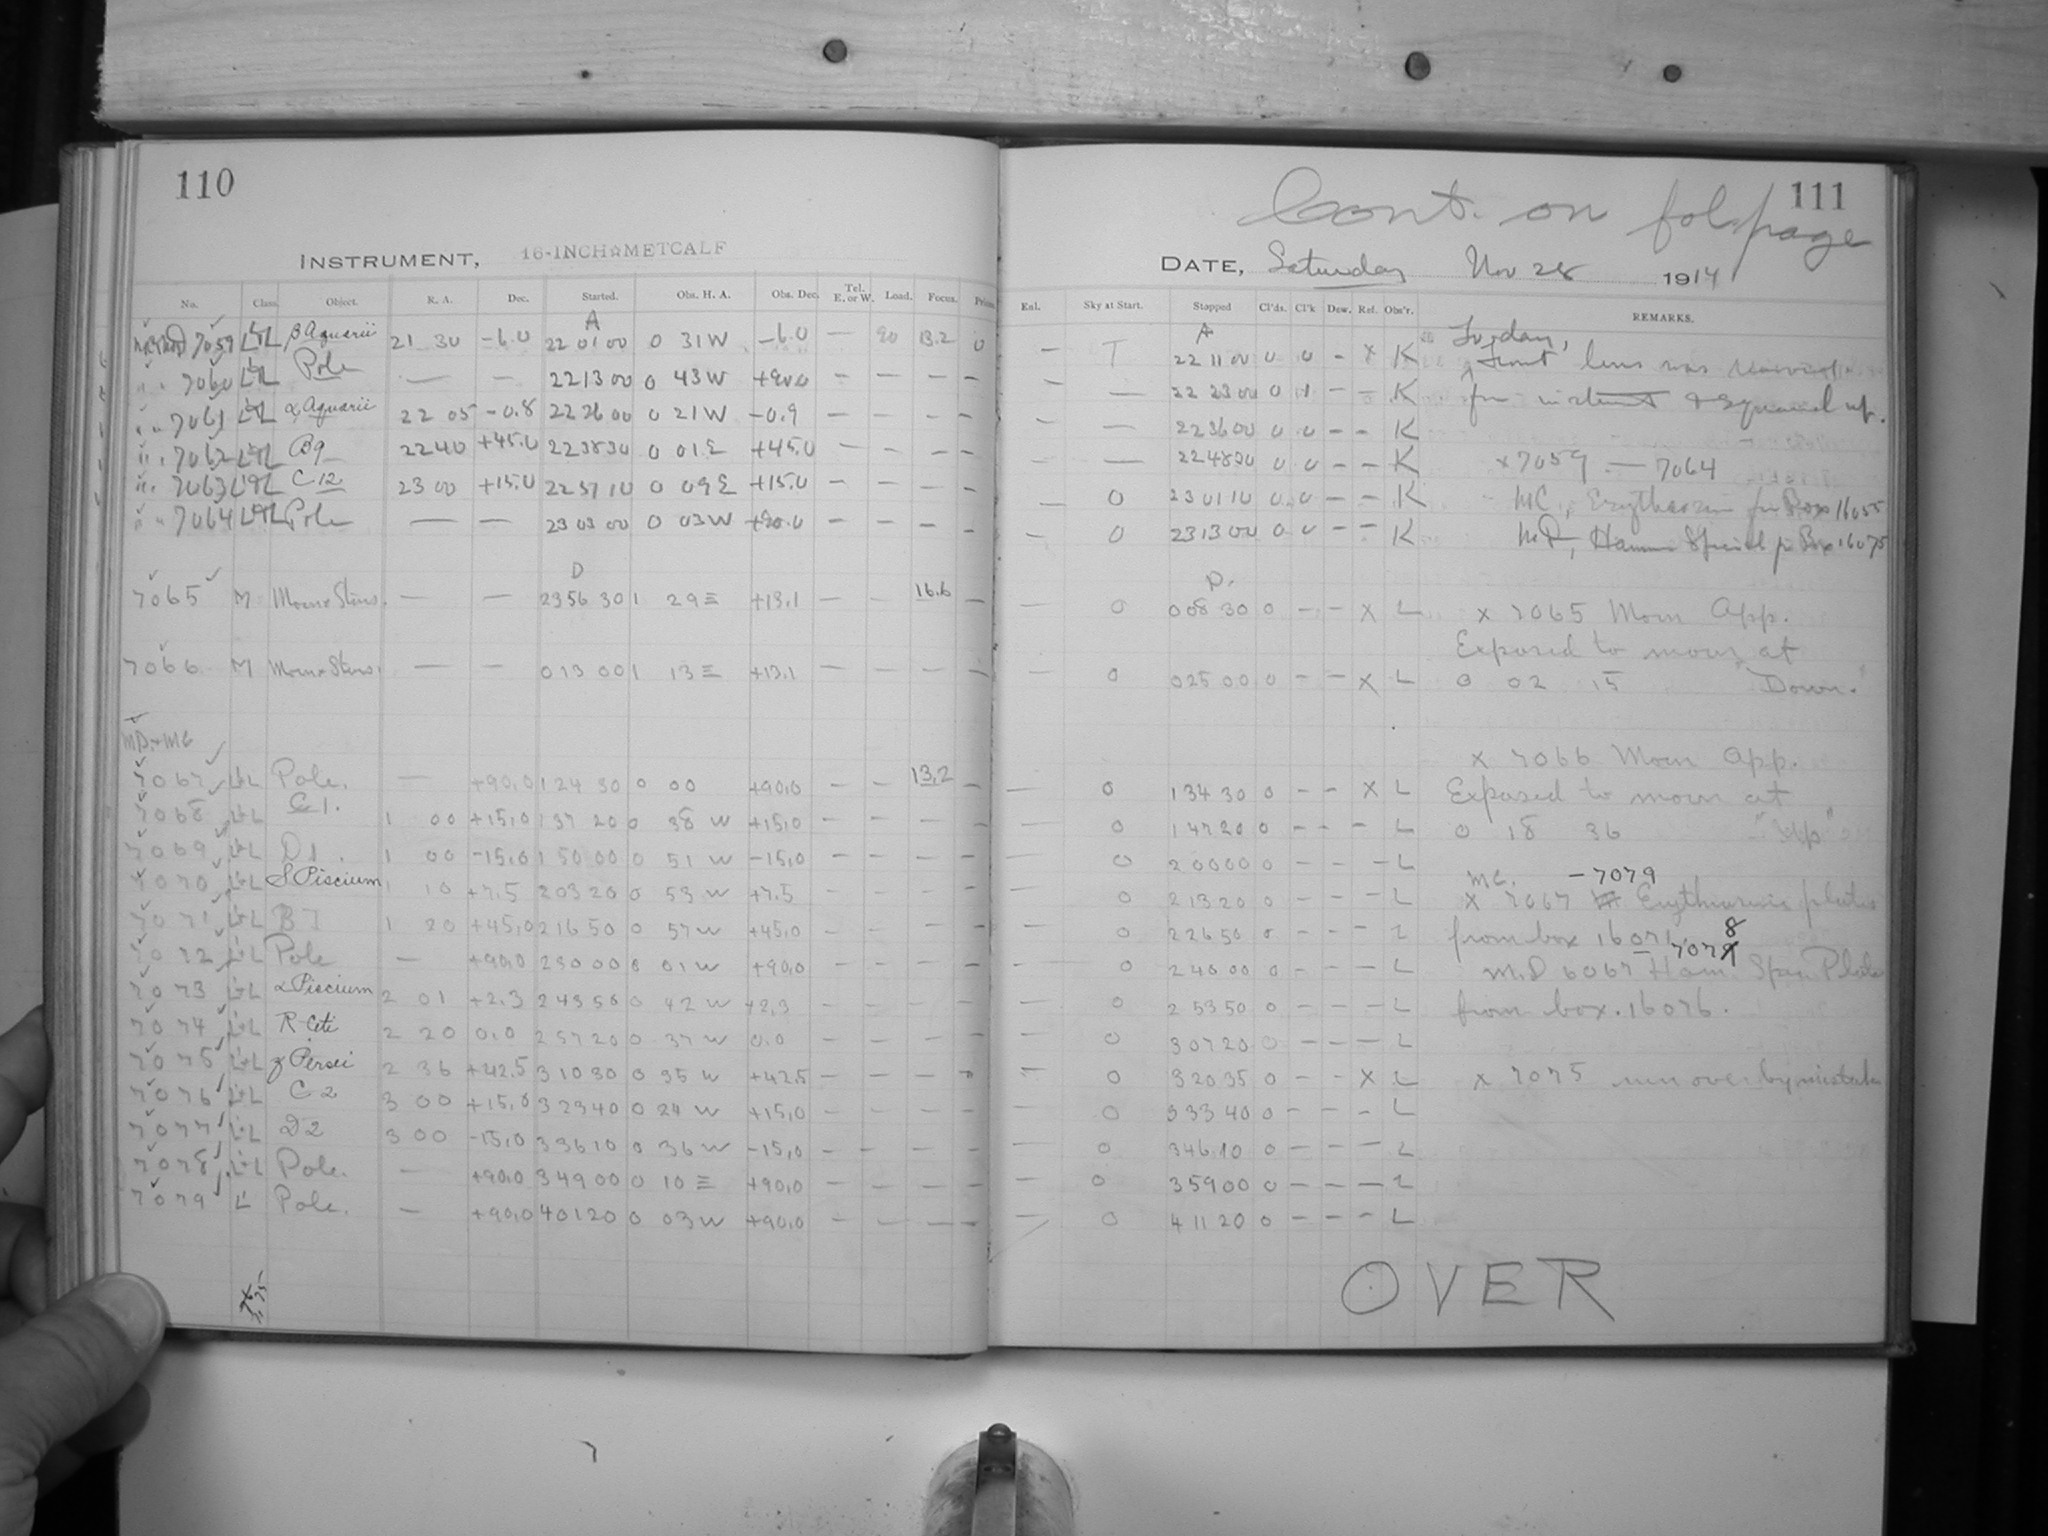 110
INSTRUMENT, 16-INCH☆METCALF
No. Class. Object. R. A. Dec. Started. Obs. H. A. Obs. Dec. Tel. E. or W. Load. Focus. Prism
A
7059 β Aquarii 21 30 -6.0 22 01 00 0 31 W -6.0 — 90 13.2 0
7060 Pole — — 22 13 00 0 43 W +90.0 — — — —
7061 α Aquarii 22 05 -0.8 22 26 00 0 21 W -0.9 — — — —
7062 B9 22 40 +45.0 22 38 30 0 01 E +45.0 — — — —
7063 C 12 23 00 +15.0 22 51 10 0 09 E +15.0 — — — —
7064 Pole — — 23 03 00 0 03 W +90.0 — — — —
D
7065 M Moon + Stars. — — 23 56 30 1 29 E +13.1 — — 16.6 —
7066 M Moon + Stars. — — 0 13 00 1 13 E +13.1 — — — —
MD. + MC
7067 L+L Pole. — +90.0 1 24 30 0 00 +90.0 — — 13.2 —
7068 L+L C 1. 1 00 +15.0 1 37 20 0 38 W +15.0 — — — —
7069 L+L D 1. 1 00 -15.0 1 50 00 0 51 W -15.0 — — — —
7070 L+L S Piscium 1 10 +7.5 2 03 20 0 53 W +7.5 — — — —
7071 L+L B 1 20 +45.0 2 16 50 0 57 W +45.0 — — — —
7072 L+L Pole — +90.0 2 30 00 0 01 W +90.0 — — — —
7073 L+L α Piscium 2 01 +2.3 2 43 50 0 42 W +2.3 — — — —
7074 L+L R Ceti 2 20 0.0 2 57 20 0 37 W 0.0 — — — —
7075 L+L Persei 2 36 +42.5 3 10 30 0 35 W +42.5 — — — —
7076 L+L C 2 3 00 +15.0 3 23 40 0 24 W +15.0 — — — —
7077 L+L D 2 3 00 -15.0 3 36 10 0 36 W -15.0 — — — —
7078 L+L Pole. — +90.0 3 49 00 0 10 E +90.0 — — — —
7079 L Pole. — +90.0 4 01 20 0 03 W +90.0 — — — —
111
Cont. on fol. page
DATE, Saturday Nov 28 1914
Enl. Sky at Start. Stopped Cl'ds. Cl'k Dew. Ref. Obs'r. REMARKS.
A
— T 22 11 00 0 0 — x K
— — 22 23 00 0 1 — — K
— — 22 36 00 0 0 — — K
— — 22 48 30 0 0 — — K
— 0 23 01 10 0 0 — — K
— 0 23 13 00 0 0 — — K
D.
— 0 0 08 30 0 — — x L
0 0 25 00 0 — — x L
— 0 1 34 30 0 — — x L
0 1 47 20 0 — — — L
0 2 00 00 0 — — — L
0 2 13 20 0 — — — L
0 2 26 50 0 — — — L
0 2 40 00 0 — — — L
0 2 53 50 0 — — — L
0 3 07 20 0 — — — L
— 0 3 20 35 0 — — x L
0 3 33 40 0 — — — L
— 0 3 46 10 0 — — — L
— 0 3 59 00 0 — — — L
— 0 4 11 20 0 — — — L
front lens was
for squared up.
x 7059 — 7064
MC, Erythrosin for Box 16055
MD, Hammer Special for Box 16075
x 7065 Moon App.
Exposed to moon at
0 02 15 "Down."
x 7066 Moon App.
Exposed to moon at
0 18 36 "Up"
MC. - 7079
x 7067 Erythrosin plates
from box 16071
— 7078
M.D 6067 Ham. Spec. Plate
from box. 16076.
x 7075 run over by mistake
OVER